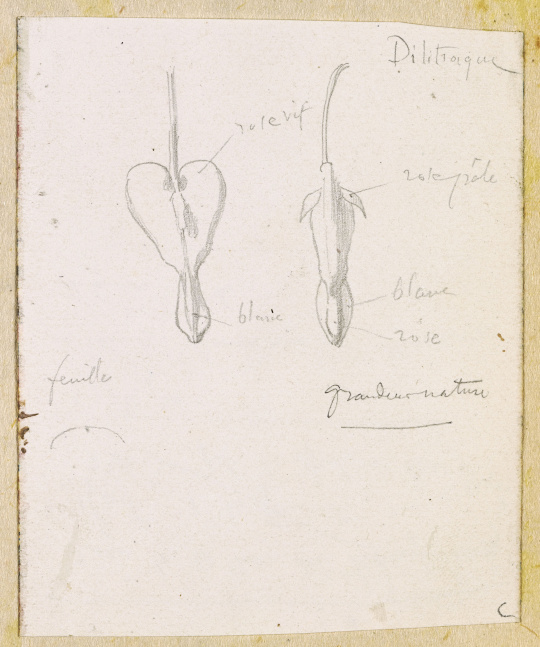 Dilitraque
rose vif
rose pâle
blanc
blanc
rose
feuille
grandeur nature